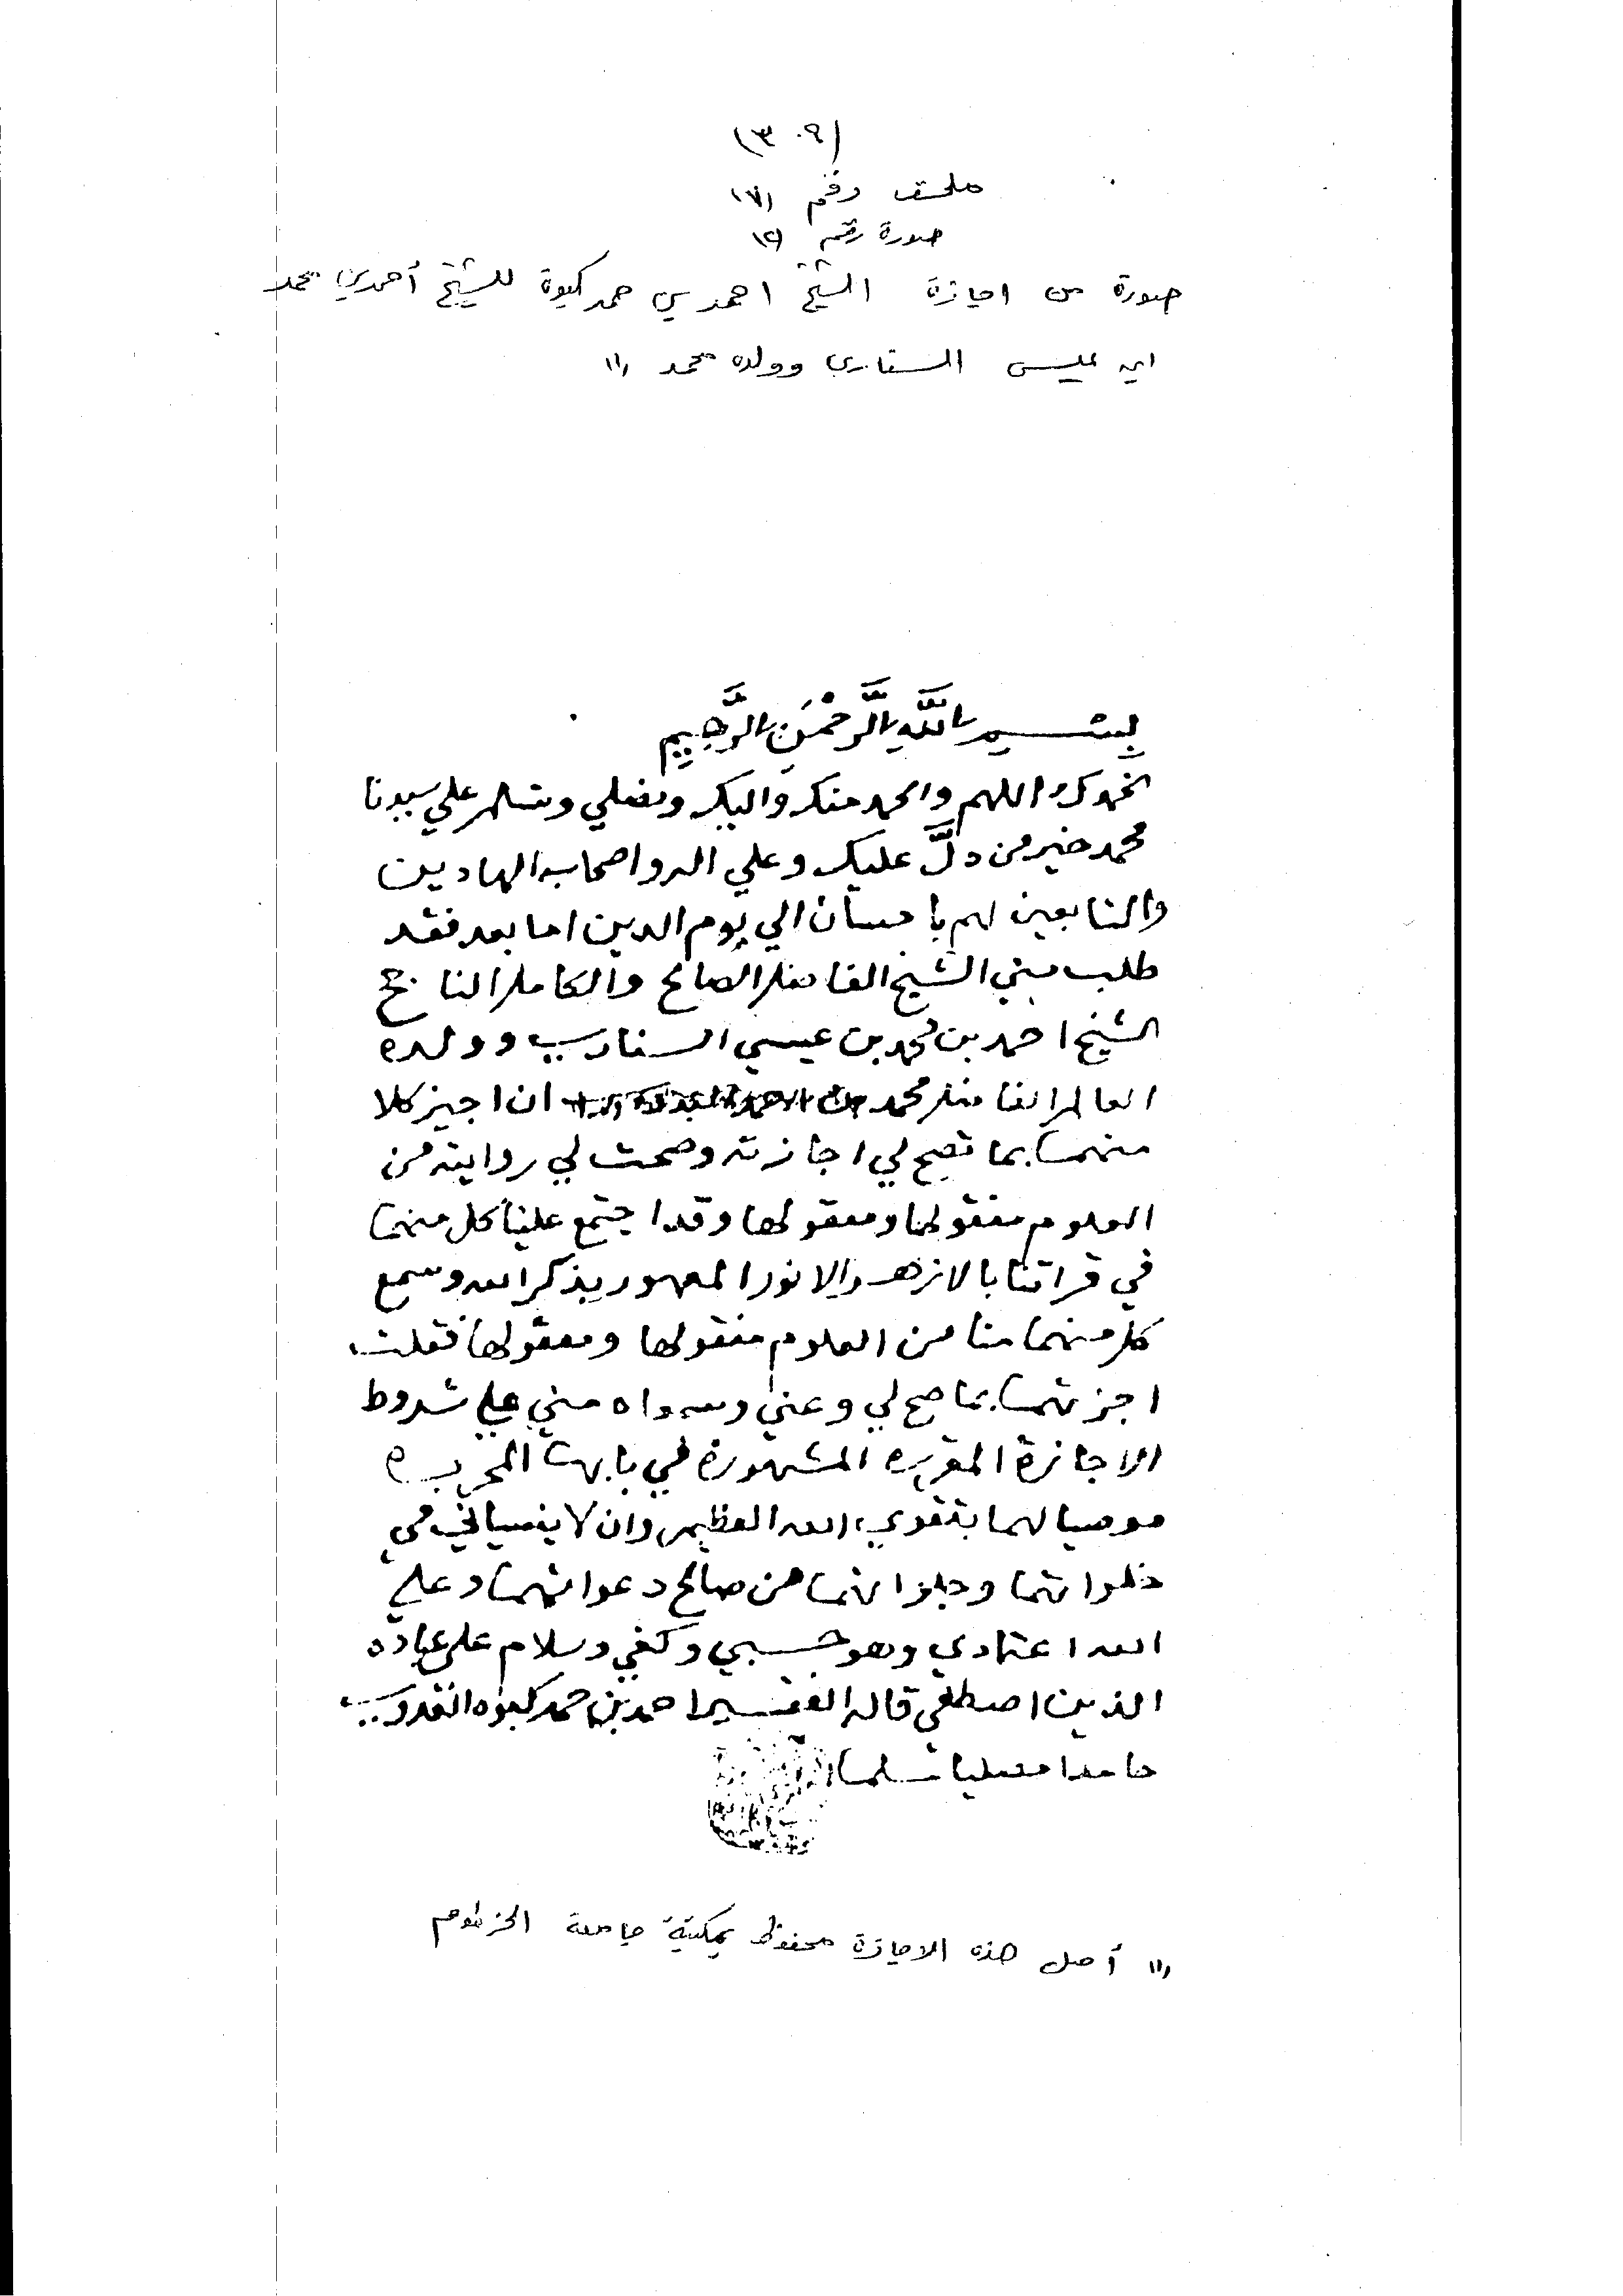 (٣٠٩)
ملحق رقم (٧)
صورة رقم (٢)
صورة من اجازة الشيخ احمد بن حمد كبوة للشيخ أحمد بن محمد
ابن عيسى السنارى وولده محمد (١)
بِسْمِ اللَّهِ الرَّحْمَنِ الرَّحِيمِ
نحمدك اللهم والحمد منك واليك ونصلي ونسلم علي سيدنا
محمد خير من دلَّ عليك وعلي اله واصحابه الهادين
والتابعين لهم باحسان الي يوم الدين اما بعد فقد
طلب مني الشيخ الفاضل الصالح والكامل الناجح
الشيخ احمد بن محمد بن عيسي السناري وولده
العالم الفاضل محمد ان اجيز كلا
منهما بما تصح لي اجازته وصحت لي روايته من
العلوم منقولها ومعقولها وقد اجتمع علينا كل منهما
في قراتنا بالازهر الانور المعمور بذكر الله وسمع
كل منهما منا من العلوم منقولها ومعقولها فقلت
اجزتهما بما صح لي وعني وسواه مني علي شروط
الاجازة المقرره المشهورة في بابها المحرره
موصيا لهما بتقوي الله العظيم وان لا ينسياني في
خلواتهما وجلواتهما من صالح دعواتهما وعلي
الله اعتمادي وهو حسبي وكفي وسلام علي عباده
الذين اصطفي قاله الفقير احمد بن حمد كبوه العدوي
حامدا مصليا مسلما
(١) أصل هذه الاجازة محفوظ بمكتبة جامعة الخرطوم